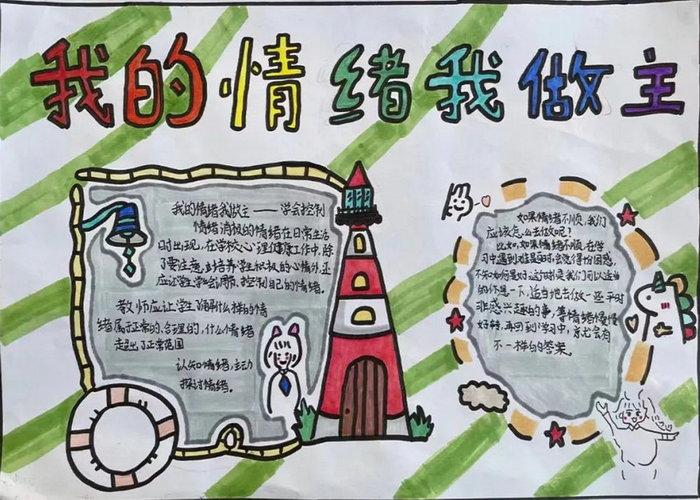 我的情绪我做主
我的情绪我做主——学会控制
情绪消极的情绪在日常生活
时出现,在学校心理健康工作中,除
了要注意培养学生积极的心情外,还
应让学生学会调节、控制自己的情绪。
教师应让学生了解什么样的情
绪属于正常的、合理的,什么情绪
走出了正常范围
认知情绪,主动
探讨情绪。
如果情绪不顺,我们
应该怎么去做呢?
比如,如果情绪不顺,在学
习中遇到难题时会觉得份困惑,
不知如何是好,这时候我们可以适当
的休息一下,适当地去做一些平时
非感兴趣的事,等情绪慢慢
好转,再回到学习中,就会有
不一样的答案。